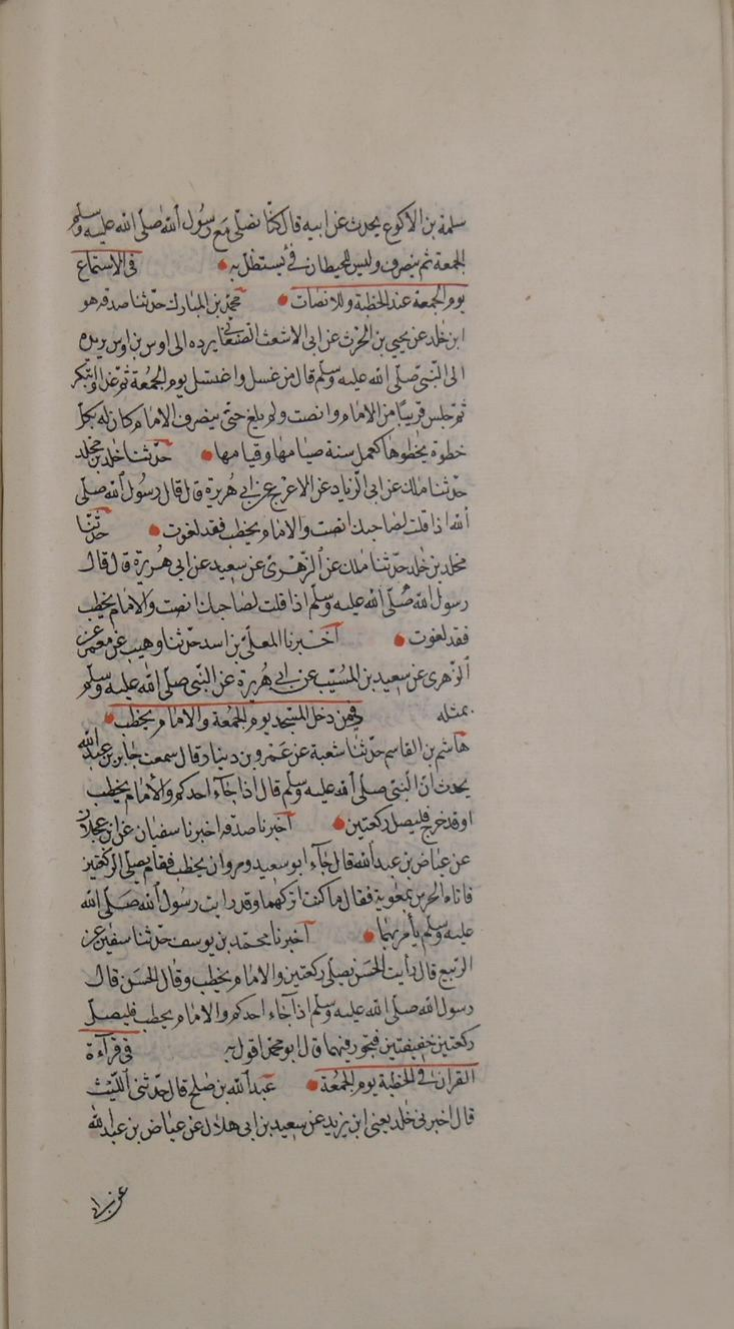 سلمة بن الاكوع يحدث عن ابيه قال كنا نصلى مع رسول الله صلى الله عليه وسلم
الجمعة ثم ننصرف وليس للحيطان فئ يستظل به • فى الاستماع
يوم الجمعة عند الخطبة وللانصات • محمد بن المبارك حدثنا صدقه هو
ابن خلد عن يحيى بن الحرث عن ابى الاشعث الصنعانى يرده الى اوس بن اوس يرده
الى النبى صلى الله عليه وسلم قال من غسل واغتسل يوم الجمعة ثم غدا وابتكر
ثم جلس قريبًا من الامام وانصت ولم يلغ حتى ينصرف الامام كان له بكل
خطوة يخطوها كعمل سنة صيامها وقيامها • حدثنا خلد بن مخلد
حدثنا ملك عن ابى الزناد عن الاعرج عن ابى هريرة قال قال رسول الله صلى
الله اذا قلت لصاحبك انصت والامام يخطب فقد لغوت • حدثنا
مخلد بن خلد حدثنا ملك عن الزهرى عن سعيد عن ابى هريرة قال قال
رسول الله صلى الله عليه وسلم اذا قلت لصاحبك انصت والامام يخطب
فقد لغوت • اخبرنا المعلى بن اسد حدثنا وهيب عن معمر عن
الزهرى عن سعيد بن المسيب عن ابى هريرة عن النبى صلى الله عليه وسلم
بمثله فيمن دخل المسجد يوم الجمعة والامام يخطب •
هاشم بن القاسم حدثنا شعبة عن عمرو بن دينار قال سمعت جابر بن عبد الله
يحدث ان النبى صلى الله عليه وسلم قال اذا جاء احدكم والامام يخطب
او قد خرج فليصل ركعتين • اخبرنا صدقه اخبرنا سفيان عن ابن عجلان
عن عياض بن عبد الله قال جاء ابو سعيد ومروان يخطب فقام يصلى الركعتين
فاتاه الحرس يمنعونه فقال ما كنت اتركهما وقد رايت رسول الله صلى الله
عليه وسلم يأمر بهما • اخبرنا محمد بن يوسف حدثنا سفين عن
الربيع قال رأيت الحسن يصلى ركعتين والامام يخطب وقال الحسن قال
رسول الله صلى الله عليه وسلم اذا جاء احدكم والامام يخطب فليصل
ركعتين خفيفتين فيهما قال ابو محمد اقول به فى قراءة
القران فى الخطبة يوم الجمعة • عبد الله بن صلح قال حدثنى الليث
قال اخبرنى خلد يعنى ابن يزيد عن سعيد بن ابى هلال عن عياض بن عبد الله